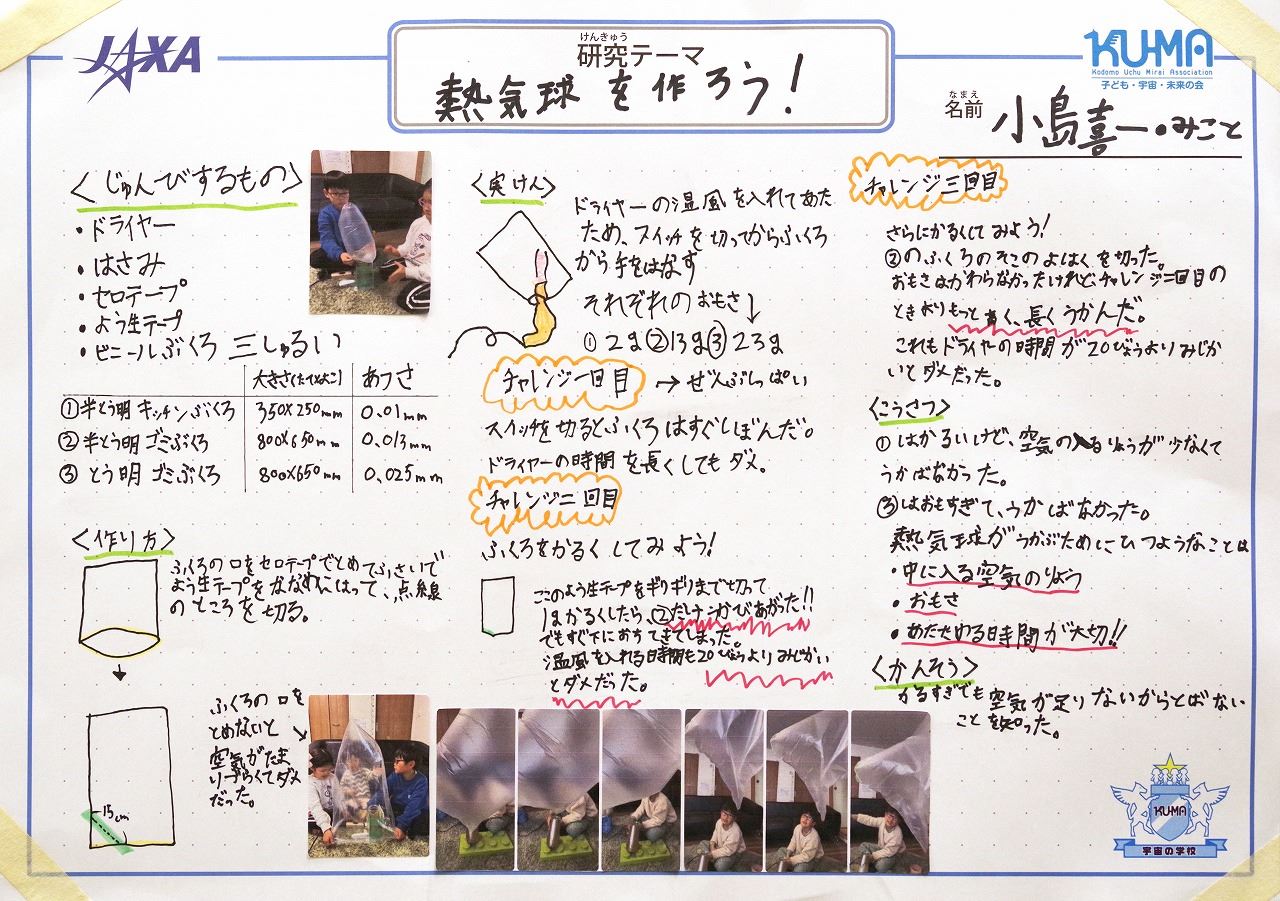 JAXA
けんきゅう
研究テーマ
熱気球を作ろう!
KU-MA
Kodomo Uchu Mirai Association
子ども・宇宙・未来の会
なまえ
名前
小島喜一・みこと
<じゅんびするもの>
・ドライヤー
・はさみ
・セロテープ
・よう生テープ
・ビニールぶくろ 三しゅるい
大きさ(たて×よこ) あつさ
①半とう明 キッチンぶくろ 350×250mm 0.01mm
②半とう明 ゴミぶくろ 800×650mm 0.013mm
③とう明 ゴミぶくろ 800×650mm 0.025mm
<作り方>
ふくろの口をセロテープでとめてふさいで
よう生テープをななめにはって、点線
のところを切る。
15cm
ふくろの口を
とめないと
空気がたま
りづらくてダメ
だった。
<実けん>
ドライヤーの温風を入れてあた
ため、スイッチを切ってからふくろ
から手をはなす
それぞれのおもさ↓
①2g②13g③23g
チャレンジ一回目 →ぜんぶしっぱい
スイッチを切るとふくろはすぐしぼんだ。
ドライヤーの時間を長くしてもダメ。
チャレンジ二回目
ふくろをかるくしてみよう!
ここのよう生テープをギリギリまで切って
1gかるくしたら、②だけうかびあがった!!
でもすぐ下におちてきてしまった。
温風を入れる時間も20びょうよりみじかい
とダメだった。
チャレンジ三回目
さらにかるくしてみよう!
②のふくろのそこのよはくを切った。
おもさはかわらなかったけれどチャレンジ二回目の
ときよりもっと く、長くうかんだ。
これもドライヤーの時間が20びょうよりみじか
いとダメだった。
<こうさつ>
①はかるいけど、空気の入るりょうが少なくて
うかばなかった。
③はおもすぎて、うかばなかった。
熱気球がうかぶためにひつようなことは
・中に入る空気のりょう
・おもさ
・あたためる時間が大切!!
<かんそう>
かるすぎても空気が足りないからとばない
ことを知った。
KU-MA
宇宙の学校